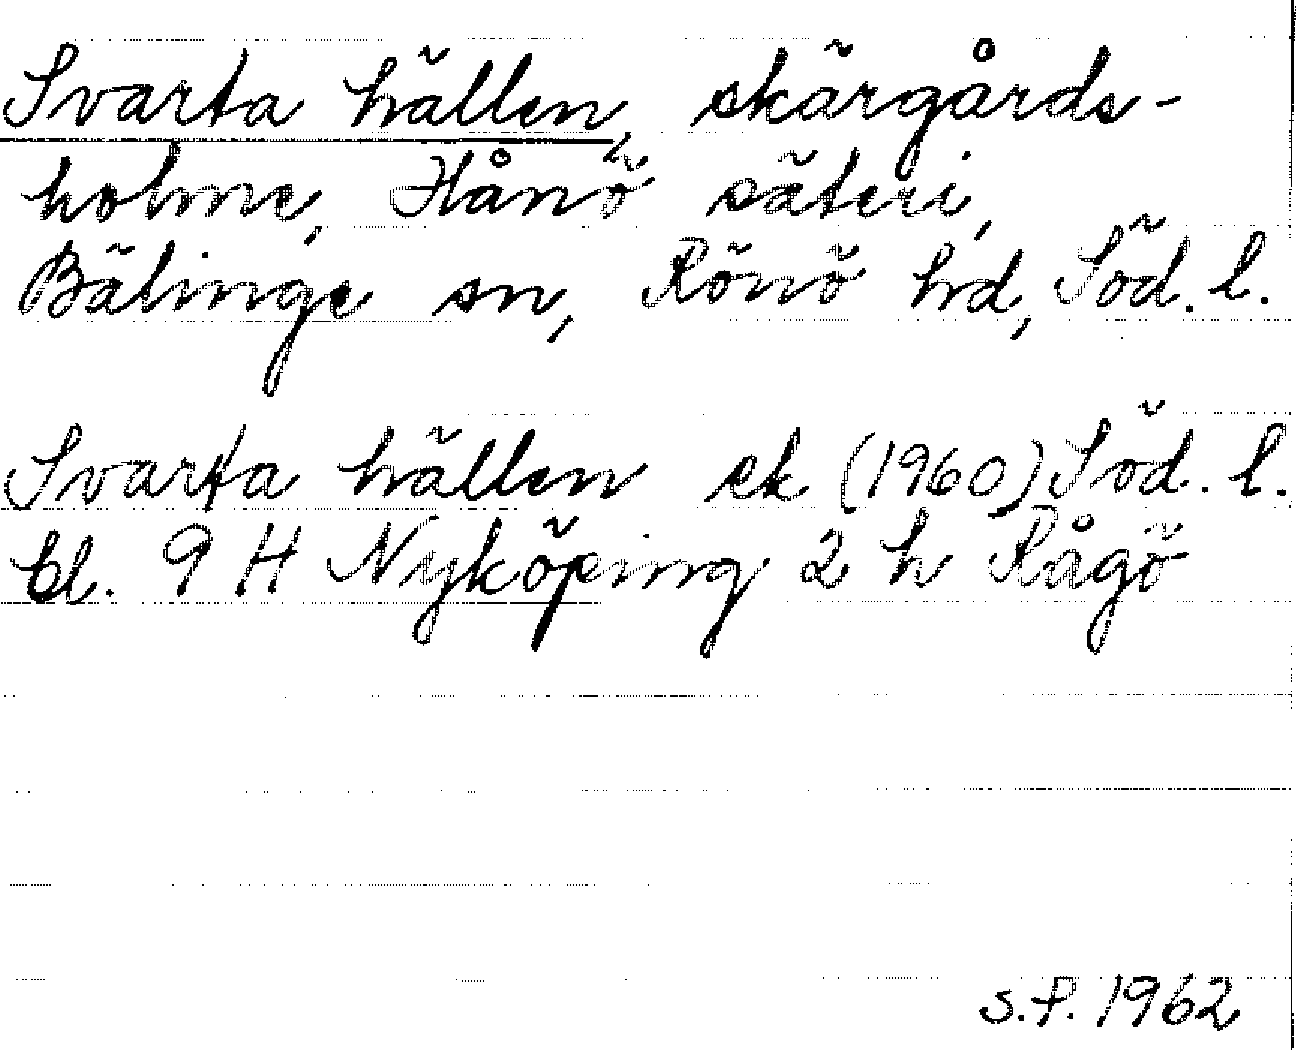 Svarta hällen, skärgårds-
holme, Hånö säteri,
Bälinge sn, Rönö hd, Söd. l.
Svarta hällen ek (1960) Söd. l.
bl. 9 H Nyköping 2 h Rågö
S.P. 1962